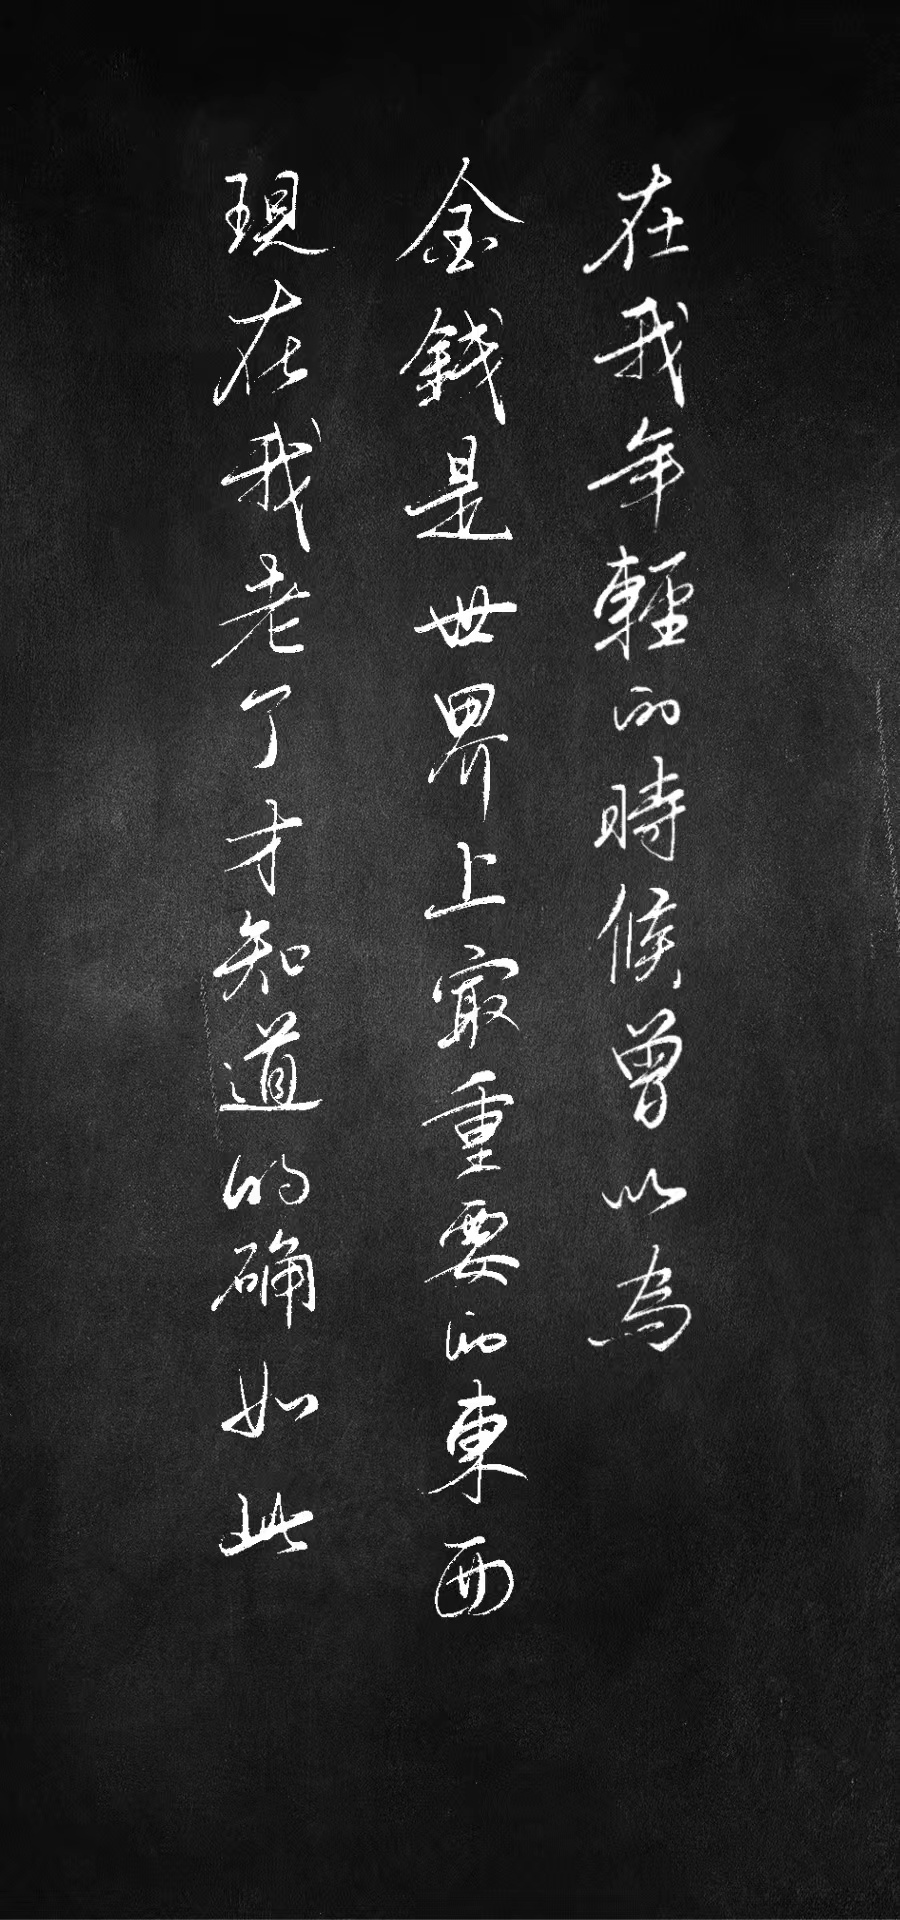 在我年輕的時候曾以為
金錢是世界上最重要的東西
現在我老了才知道的确如此